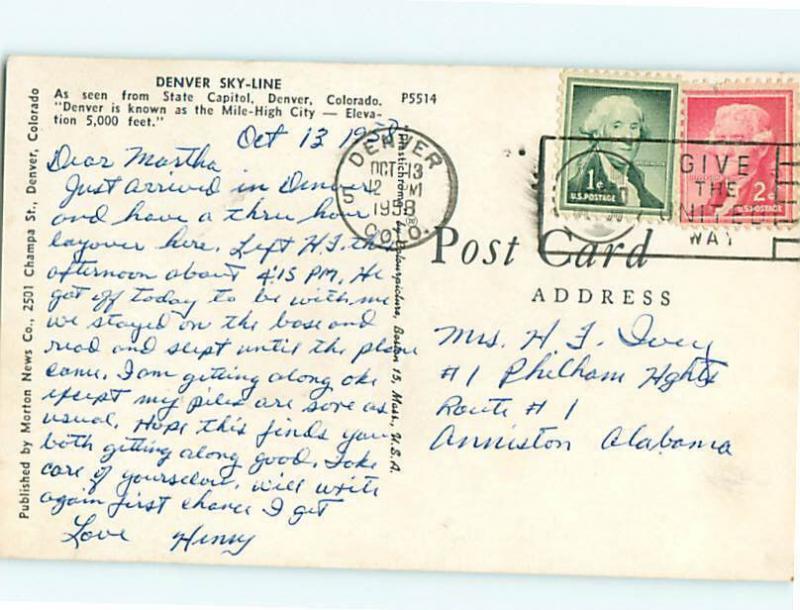 DENVER SKY-LINE
As seen from State Capitol, Denver, Colorado. P5514
"Denver is known as the Mile-High City — Eleva-
tion 5,000 feet."
Oct 13 1958
Dear Martha
Just arrived in Denver
and have a thru hour
layover here. Left H.F. this
afternoon about 4:15 PM. He
got off today to be with me
we stayed on the base and
read and slept until the plane
came. I am getting along oke
except my piles are sore as
usual. Hope this finds you
both getting along good. Take
care of yourselves. will write
again first chance I get
Love Henry
Published by Morton News Co., 2501 Champa St., Denver, Colorado
Plastichrome ® by Colourpicture, Boston 15, Mass., U.S.A.
DENVER
OCT 13
12 PM
1958
COLO.
1¢
U.S. POSTAGE
2¢
U.S. POSTAGE
GIVE
THE
UNITED
WAY
Post Card
ADDRESS
Mrs. H F. Ivey
#1 Philham Hghts
Route # 1
Anniston Alabama